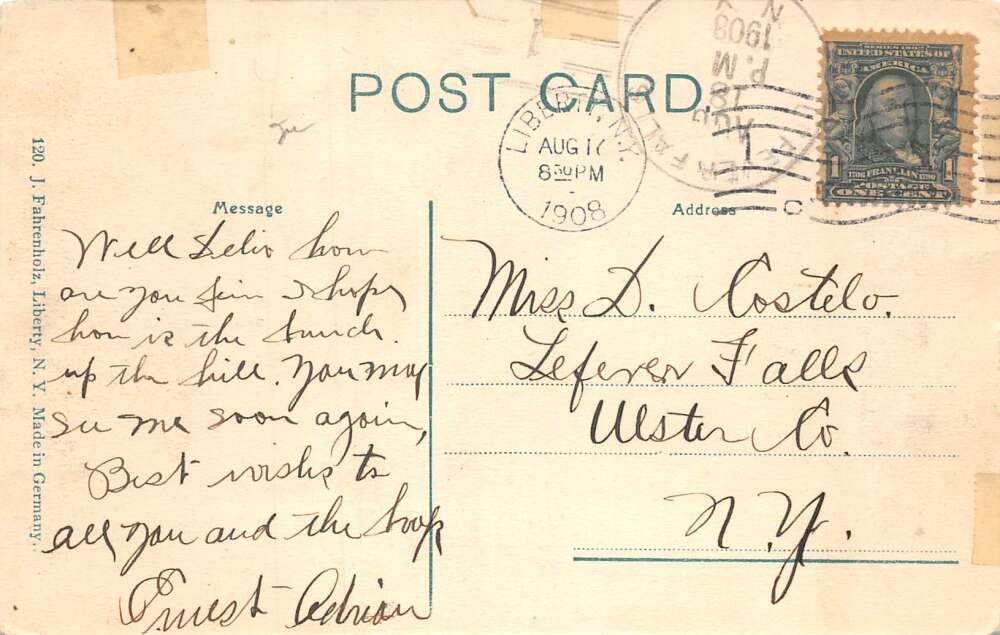 POST CARD.
LIBERTY, N.Y.
AUG 17
8 30 PM
1908
FALLS
AUG
18
P.M
1908
N
SERIES 1902
UNITED STATES OF
AMERICA
1 1706 FRANKLIN 1790 1
POSTAGE
ONE CENT
120. J. Fahrenholz, Liberty, N. Y. Made in Germany.
Message
Well how
are you I hope
how is the bunch
up the hill. You may
see me soon again,
Best wishes to
all you and the
Ernest Adrian
Address
Miss D. Costelo.
Lefever Falls
Ulster Co.
N.Y.